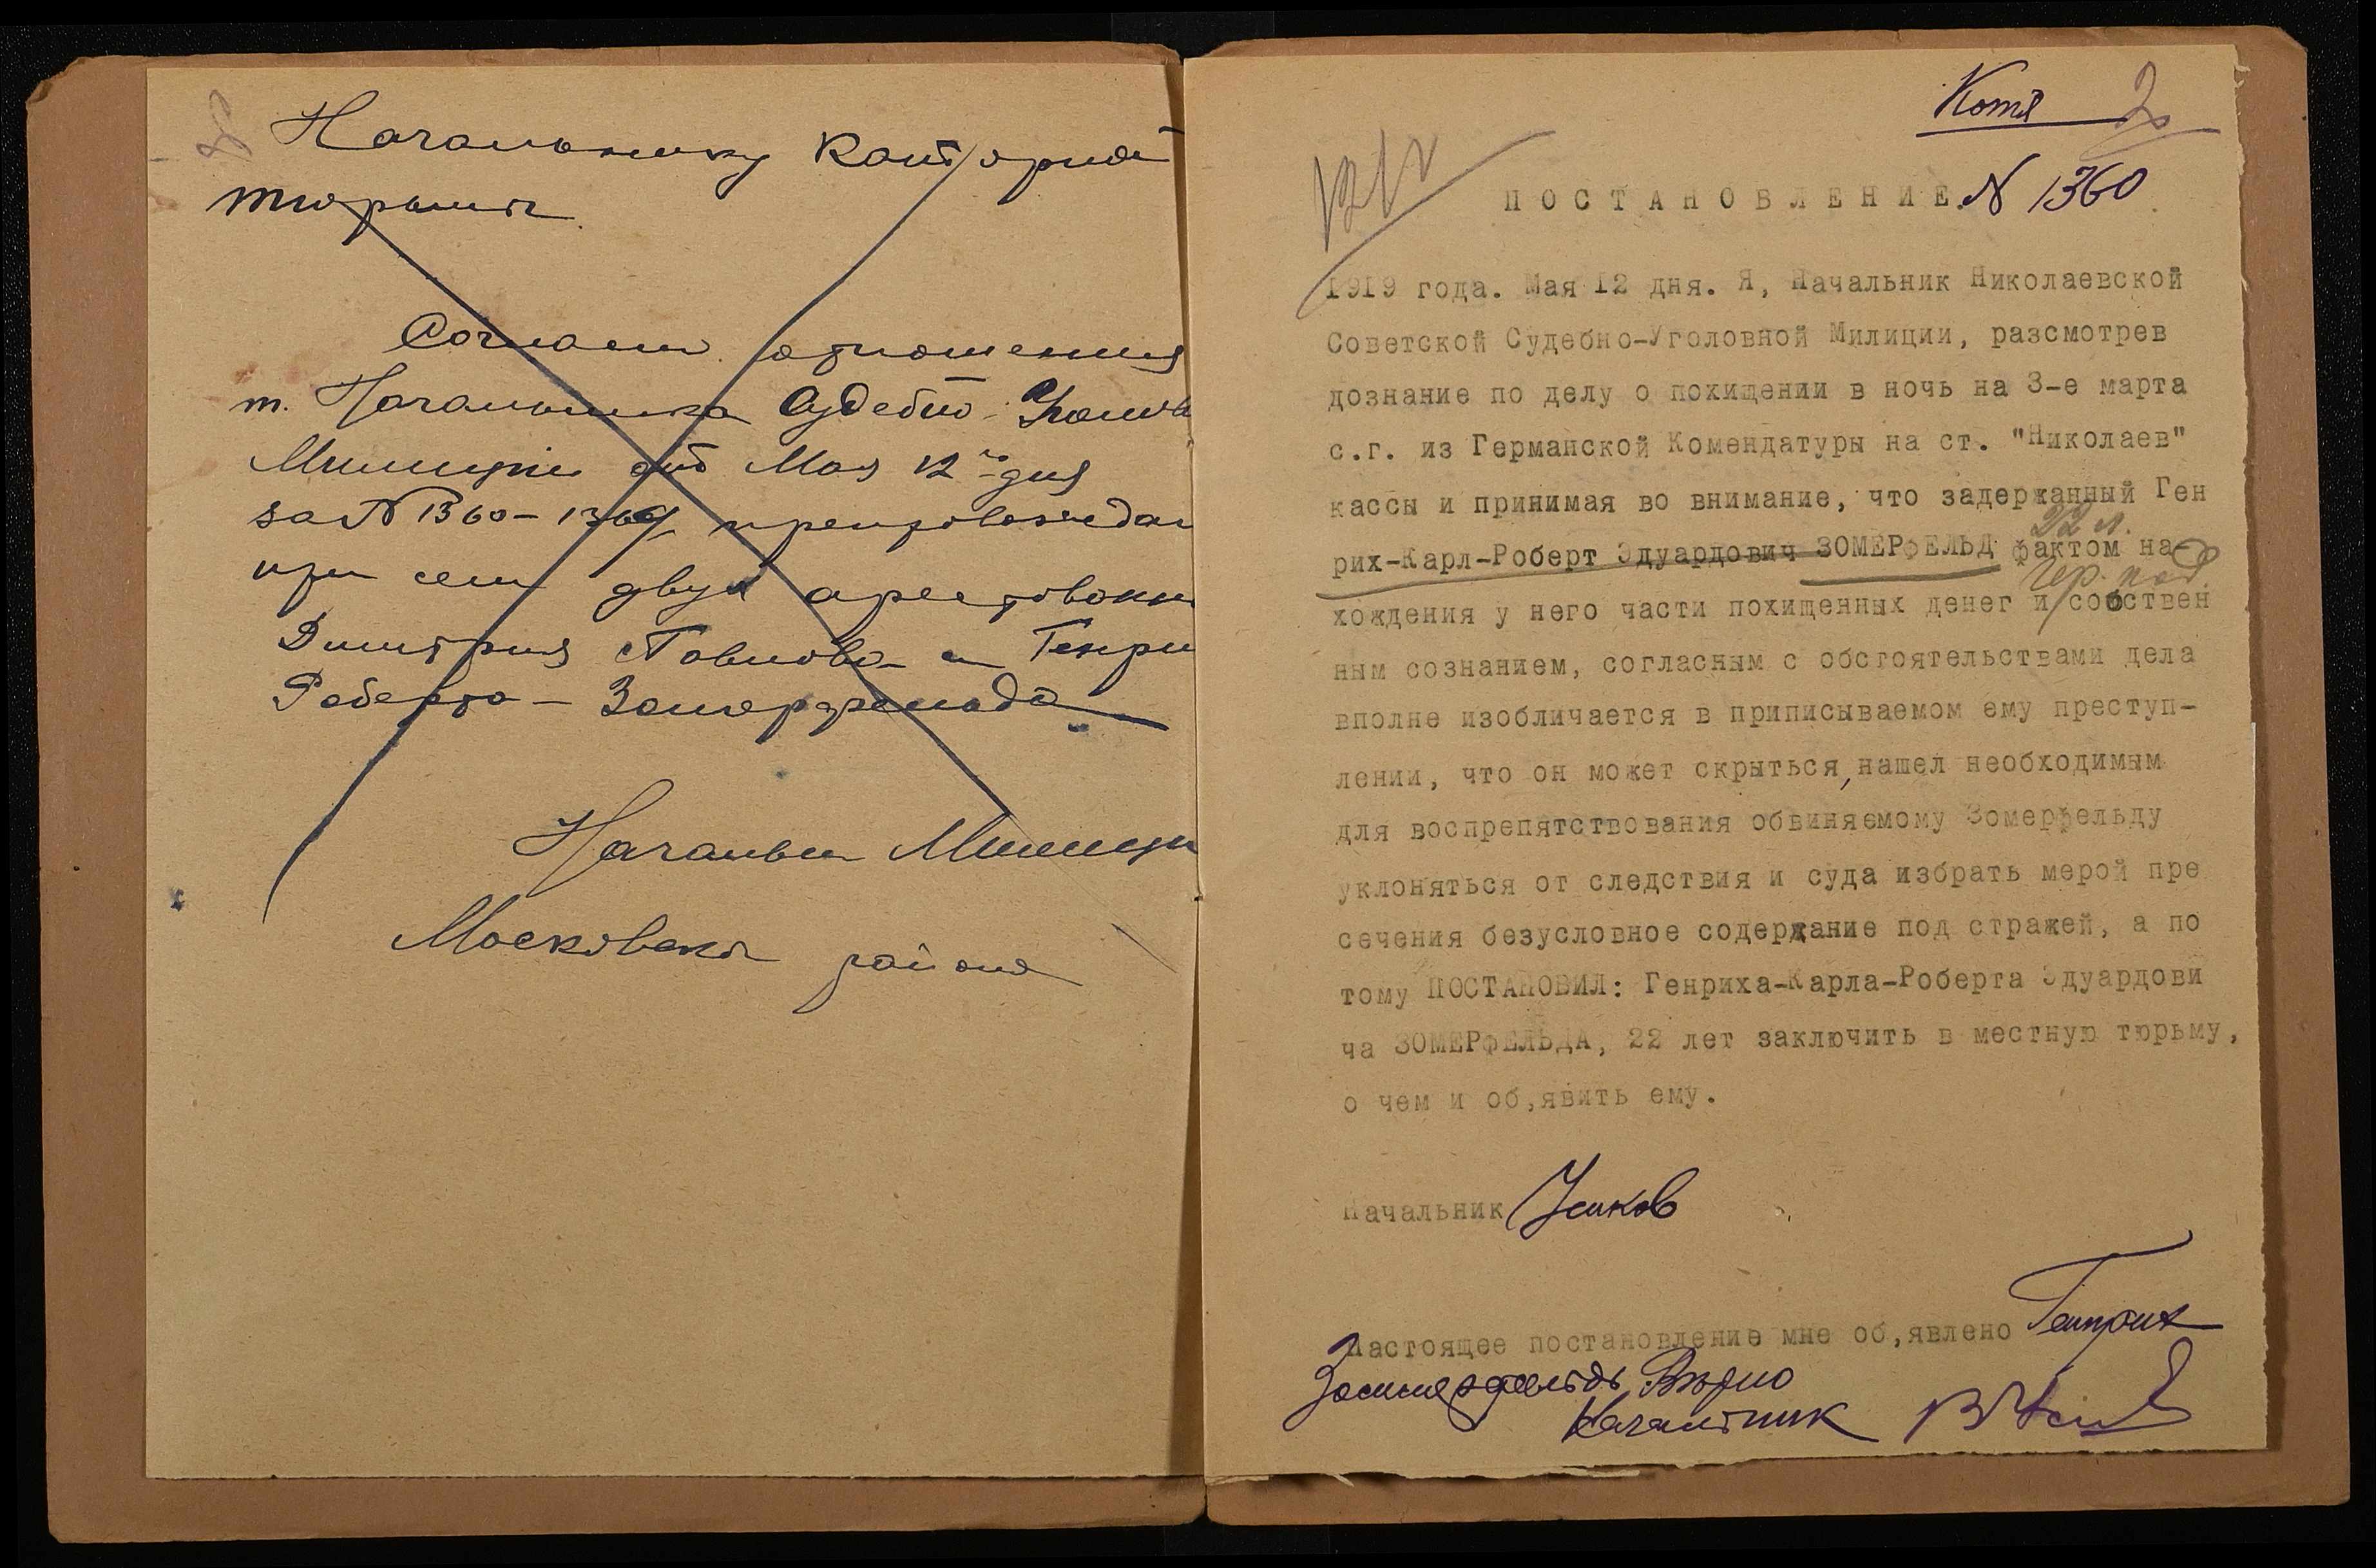 Начальнику Каторжной
тюрьмы
Согласно отношения
т. Начальника Судебно-Уголов
Милиции от Мая 12го дня
за № 1360-1364 препровождаю
при сем двух арестованн
Дмитрия Павлова и Генри
Роберта - Зомерфельда
Начальн Милиции
Московского района
Копия
ПОСТАНОВЛЕНИЕ. № 1360
1919 года. Мая 12 дня. Я, Начальник Николаевской
Советской Судебно-Уголовной Милиции, разсмотрев
дознание по делу о похищении в ночь на 3-е марта
с.г. из Германской Комендатуры на ст. "Николаев"
кассы и принимая во внимание, что задержанный Ген
22 л.
рих-Карл-Роберт Эдуардович ЗОМЕРФЕЛЬД фактом на-
Гер. под.
хождения у него части похищенных денег и собствен
ным сознанием, согласным с обстоятельствами дела
вполне изобличается в приписываемом ему преступ-
лении, что он может скрыться, нашел необходимым
для воспрепятствования обвиняемому Зомерфельду
уклоняться от следствия и суда избрать мерой пре
сечения безусловное содержание под стражей, а по
тому ПОСТАНОВИЛ: Генриха-Карла-Роберта Эдуардови
ча ЗОМЕРФЕЛЬДА, 22 лет заключить в местную тюрьму,
о чем и об,явить ему.
Начальник Усиков
Настоящее постановление мне об,явлено Генрих
Зоммерфельдъ Вѣрно
Начальник